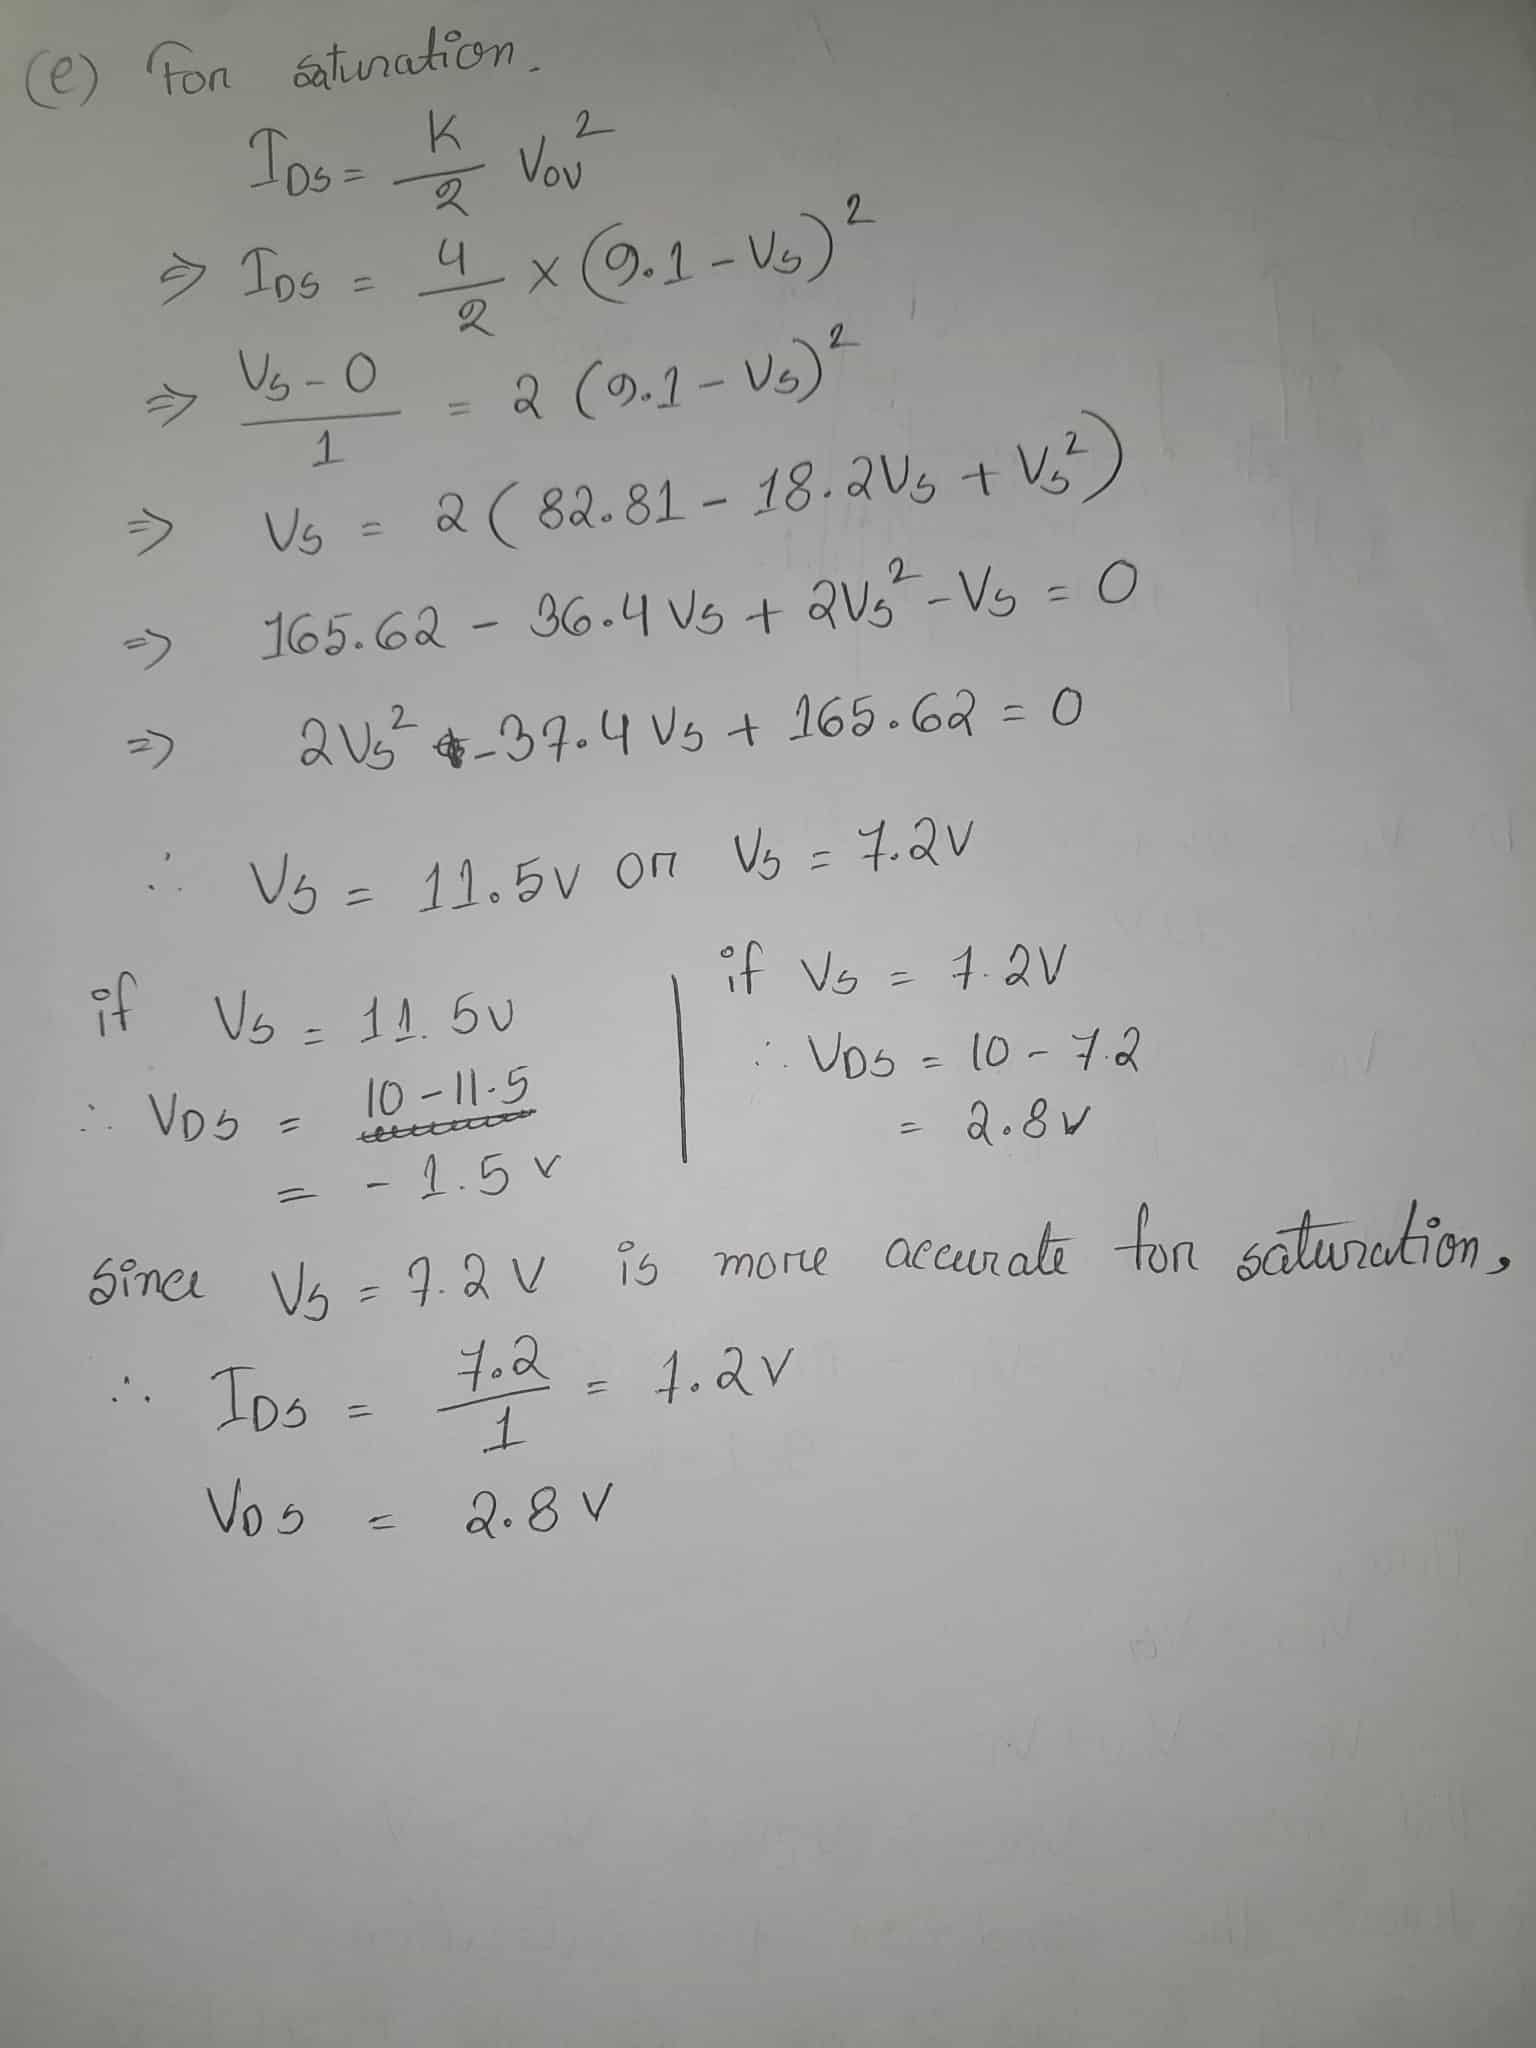 (e) For saturation.
I_DS = K/2 V_OV²
⇒ I_DS = 4/2 × (9.1 - V_S)²
⇒ (V_S - 0)/1 = 2 (9.1 - V_S)²
⇒ V_S = 2 (82.81 - 18.2V_S + V_S²)
⇒ 165.62 - 36.4 V_S + 2V_S² - V_S = 0
⇒ 2V_S² - 37.4 V_S + 165.62 = 0
∴ V_S = 11.5V or V_S = 7.2V
if V_S = 11.5V
∴ V_DS = 10 - 11.5
= - 1.5 V
if V_S = 7.2V
∴ V_DS = 10 - 7.2
= 2.8V
Since V_S = 7.2 V is more accurate for saturation,
∴ I_DS = 7.2/1 = 7.2V
V_DS = 2.8 V